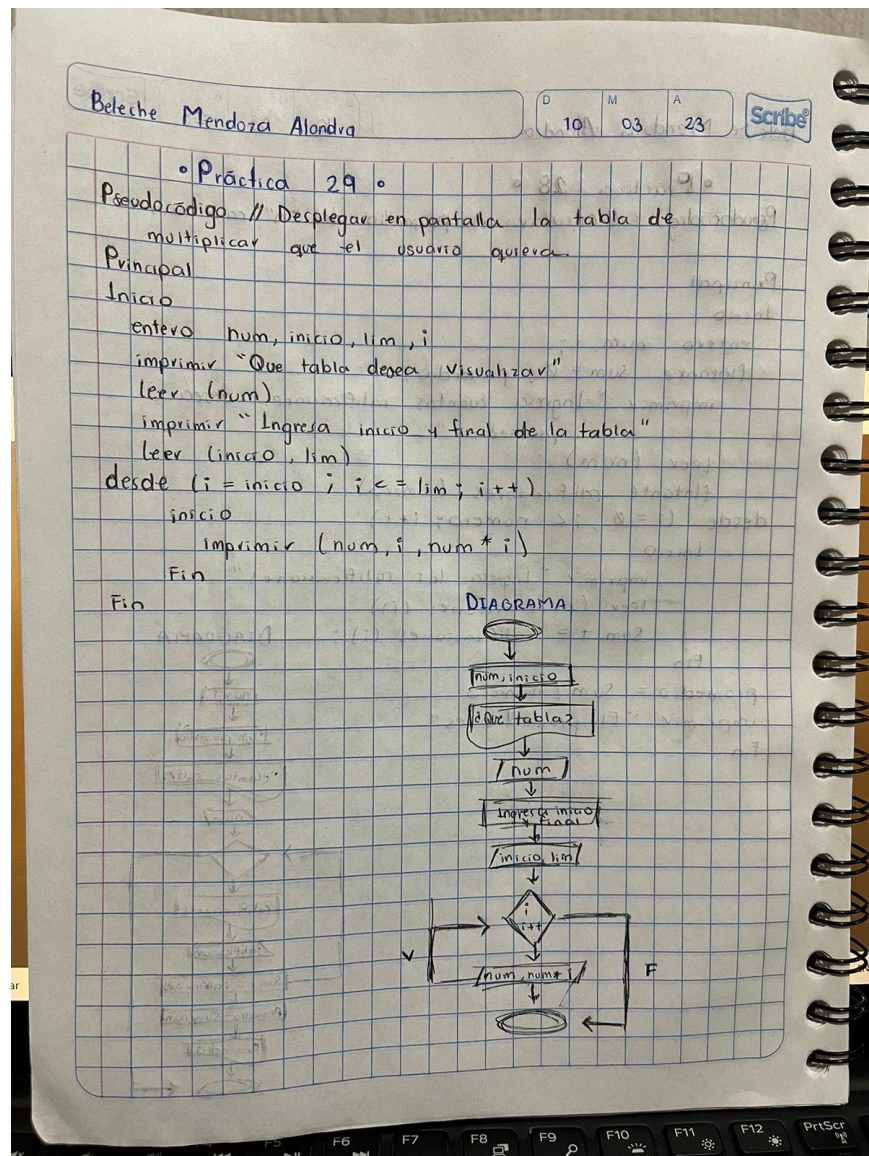 Beleche Mendoza Alondra
D M A
10 03 23
Scribe®
• Práctica 29 •
Pseudocódigo // Desplegar en pantalla la tabla de
multiplicar que el usuario quiera
Principal
Inicio
entero num, inicio, lim, i
imprimir "Que tabla desea visualizar"
leer (num)
imprimir "Ingresa inicio y final de la tabla"
leer (inicio, lim)
desde (i = inicio ; i <= lim; i++)
inicio
imprimir (num, i, num * i)
Fin
Fin
DIAGRAMA
num, inicio
¿Que tabla?
num
Ingresa inicio
y final
inicio, lim
i
i++
V
num, num* i
F
F5 F6 F7 F8 F9 F10 F11 F12 PrtScr